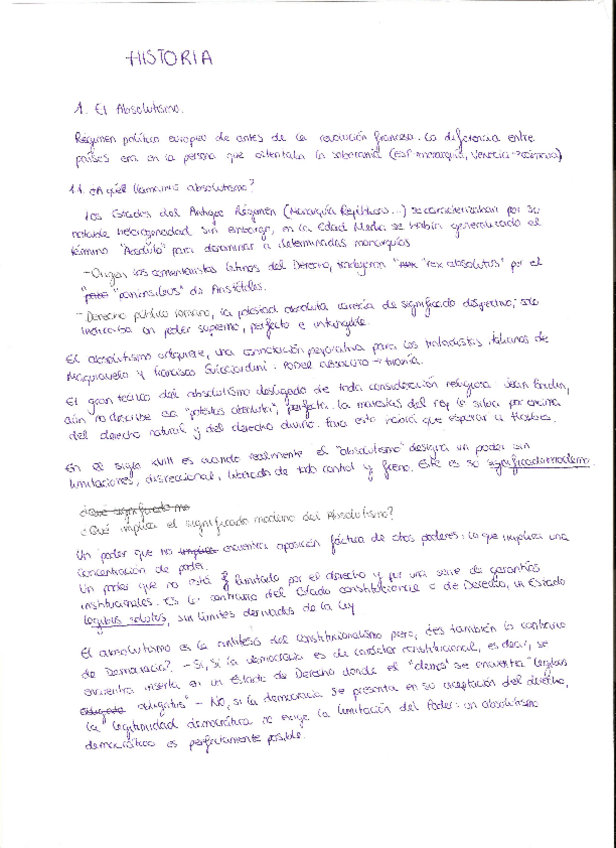 HISTORIA
1. El Absolutismo.
Régimen político europeo de antes de la revolución francesa. La diferencia entre
países era en la persona que ostentaba la soberanía (ESP monarquía, Venecia-
1.1. ¿A qué llamamos absolutismo?
Los Estados del Antiguo Régimen (Monarquía, Repúblicas...) se caracterizaban por su
notable heterogeneidad. Sin embargo, en la Edad Media se había generalizado el
término "Absoluto" para denominar a determinadas monarquías
- Origen los comentaristas latinos del Derecho, tradujeron "rex absolutus" por el
" de Aristóteles.
- Derecho público romano, la potestad absoluta carecía de significado despectivo; solo
indicaba un poder supremo, perfecto e intangible.
El absolutismo adquiere, una connotación peyorativa para los tratadistas italianos de
Maquiavelo y Francisco Guicciardini: Poder absoluto → tiranía.
El gran teórico del absolutismo desligado de toda consideración religiosa Jean Bodin,
aún no describe esa "potestas absoluta", perfecta. La maiestas del rey lo situa por encima
del derecho natural y del derecho divino. Para esto habrá que esperar a Hobbes.
En el siglo XVIII es cuando realmente el "absolutismo" designa un poder sin
limitaciones, discrecional, liberado de todo control y freno. Este es su significado moderno.
¿Qué significado mo
¿Qué implica el significado moderno del Absolutismo?
Un poder que no implica encuentra oposición fáctica de otros poderes: lo que implica una
concentración de poder.
Un poder que no está limitado por el derecho y por una serie de garantías
institucionales. Es lo contrario del Estado constitucional o de Derecho, un Estado
legibus solutus, sin límites derivados de la ley
El absolutismo es la antítesis del constitucionalismo pero, ¿es también lo contrario
de Democracia? - Sí, si la democracia es de carácter constitucional, es decir, se
encuentra inserta en un Estado de Derecho donde el "demos" se encuentra "legibus
obligatus" - NO, si la democracia se presenta en su acepción del derecho,
la legitimidad democrática no exige la limitación del Poder: un absolutismo
democrático es perfectamente posible.